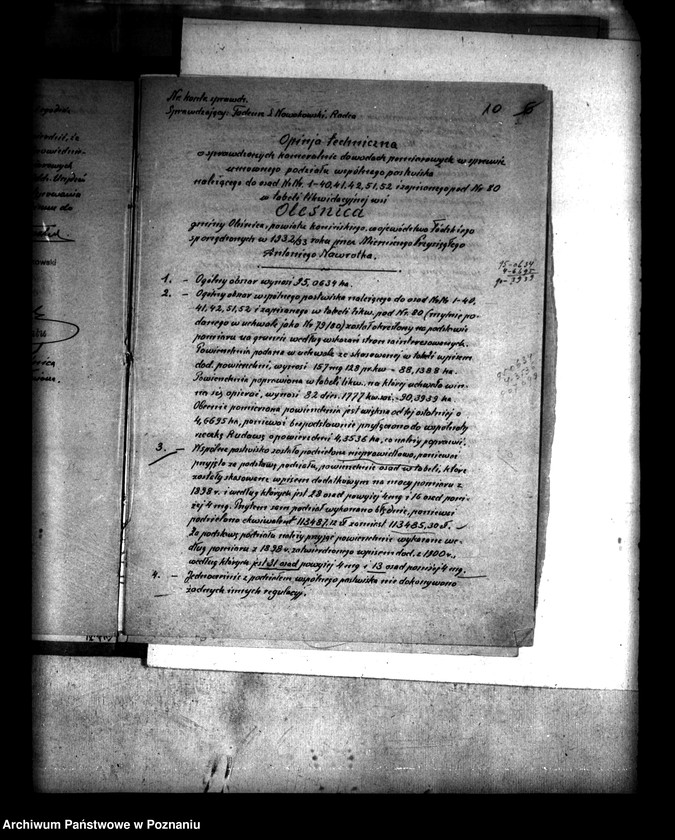 Nr. konta sprawdz.
Sprawdzający: Tadeusz S. Nowakowski, Radca
10
Opinja techniczna
o sprawdzonych kameralnie dowodach pomiarowych w sprawie
umownego podziału wspólnego pastwiska
należącego do osad №№ 1-40, 41, 42, 51, 52 i zapisanego pod Nr 80
w tabeli likwidacyjnej wsi
Oleśnica
gminy Oleśnica, powiatu konińskiego, województwa Łódzkiego
sporządzonych w 1932/33 roku przez Mierniczego Przysięgłego
Antoniego Nawrotka.
95-0634
4-6695
90-3939
1. - Ogólny obszar wynosi 95,0634 ha.
2. - Ogólny obszar wspólnego pastwiska należącego do osad №№ 1-40,
41, 42, 51, 52 i zapisanego w tabeli likw. pod Nr. 80 (mylnie po-
danego w uchwale jako Nr 79/80) został określony na podstawie
pomiaru na gruncie według wskazań stron zainteresowanych.
Powierzchnia podana w uchwale ze skasowanej w tabeli wpisem
dod. powierzchni, wynosi 157 mg 128 pr. kw - 88,1388 ha.
Powierzchnia poprawiona w tabeli likw. na której uchwała win-
na się opierać, wynosi 82 dzies. 1777 kw. saż. - 90,3939 ha.
Obecnie pomierzona powierzchnia jest większa od tej ostatniej o
4,6695 ha, ponieważ bezpodstawnie przyłączono do wspólnoty
rzekę Rudawę o powierzchni 4,3536 ha, co należy poprawić.
3. - Wspólne pastwisko zostało podzielone nieprawidłowo, ponieważ
przyjęto za podstawę podziału, powierzchnie osad w tabeli, które
zostały skasowane wpisem dodatkowym na mocy pomiaru z
1898 r. i według których jest 28 osad powyżej 4 mg i 16 osad poni-
żej 4 mg. Przytem sam podział wykonano błędnie, ponieważ
podzielono ekwiwalent 113487,12 zł zamiast 113485,30 zł.
Za podstawę podziału należy przyjąć powierzchnie wykazane we-
dług pomiaru z 1898 r. zatwierdzonego wpisem dod. z 1900 r.,
według których jest 31 osad powyżej 4 mg i 13 osad poniżej 4 mg.
4. - Jednocześnie z podziałem wspólnego pastwiska nie dokonywano
żadnych innych regulacyj.
Archiwum Państwowe w Poznaniu